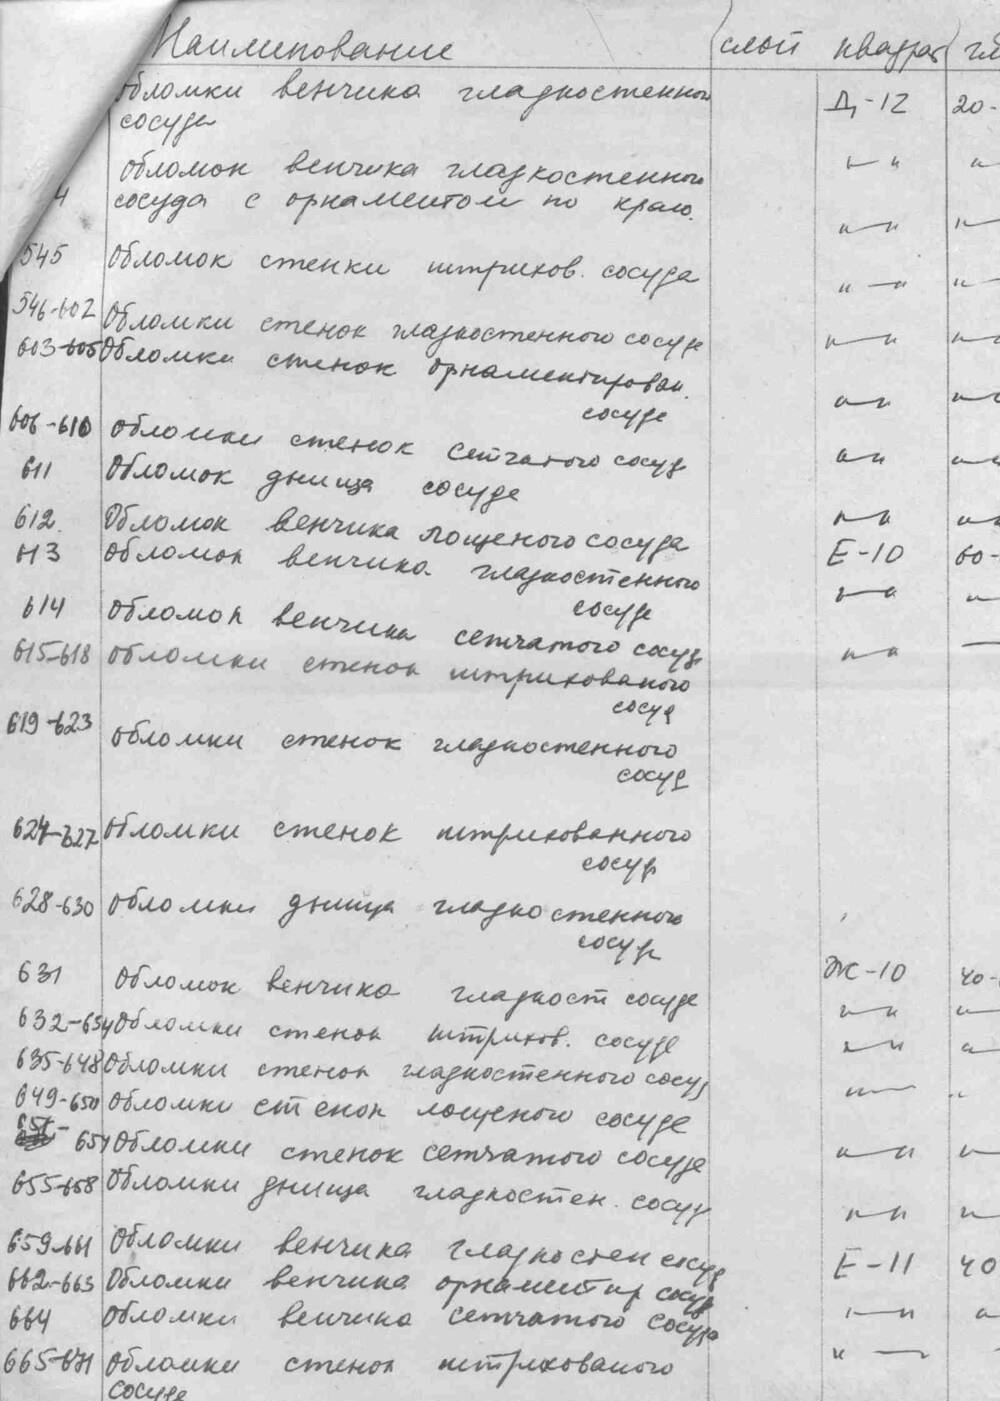 Наименование слой квадрат гл
Обломки венчика гладкостенного Д-12 20-
сосуда
Обломок венчика гладкостенного "—"
4 сосуда с орнаментом по краю. "—"
545 Обломок стенки штрихов. сосуда "—"
546-602 Обломки стенок гладкостенного сосуда "—"
603-605 Обломки стенок орнаментирован.
сосуда "—"
606-610 Обломки стенок сетчатого сосуд "—"
611 Обломок днища сосуда
612. Обломок венчика лощеного сосуда "—"
613 Обломок венчика гладкостенного Е-10 60-
сосуда "—"
614 Обломок венчика сетчатого сосуд
615-618 Обломки стенок штрихованого "—"
сосуд
619-623 Обломки стенок гладкостенного
сосуд
624-627 Обломки стенок штрихованного
сосуд
628-630 Обломки днища гладкостенного
сосуд
631 Обломок венчика гладкост сосуда Ж-10 40-
632-634 Обломки стенок штрихов. сосуда "—"
635-648 Обломки стенок гладкостенного сосуд "—"
649-650 Обломки стенок лощеного сосуда "—
651-
654 Обломки стенок сетчатого сосуда "—"
655-658 Обломки днища гладкостен. сосуд "—"
659-661 Обломки венчика гладкостен сосуд Е-11 40
662-663 Обломки венчика орнаментир сосуд
664 Обломки венчика сетчатого сосуда "—"
665-671 Обломки стенок штрихованого "—
сосуда